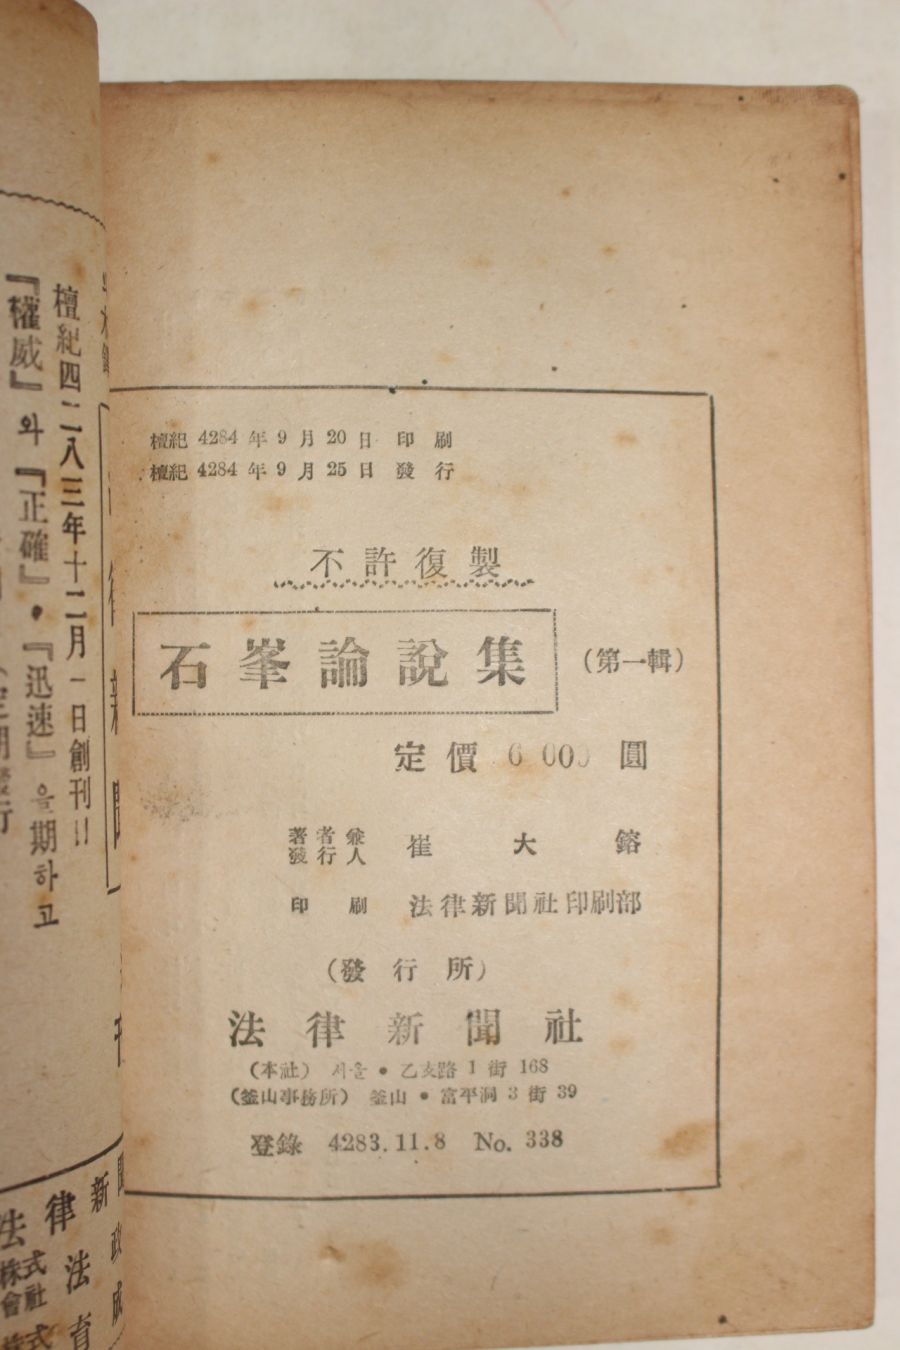 檀紀 4284 年 9 月 20 日 印 刷
檀紀 4284 年 9 月 25 日 發 行
不 許 復 製
石 峯 論 說 集 (第一輯)
定 價 6 000 圓
著 者 兼
發 行 人 崔 大 鎔
印 刷 法律新聞社印刷部
(發 行 所)
法 律 新 聞 社
(本社) 서울 • 乙支路 1 街 168
(釜山事務所) 釜山 • 富平洞 3 街 39
登錄 4283.11.8 No. 338
檀紀四二八三年十二月一日創刊!!
『權威』와『正確』•『迅速』을期하고
法 律 新 聞
株式
會社